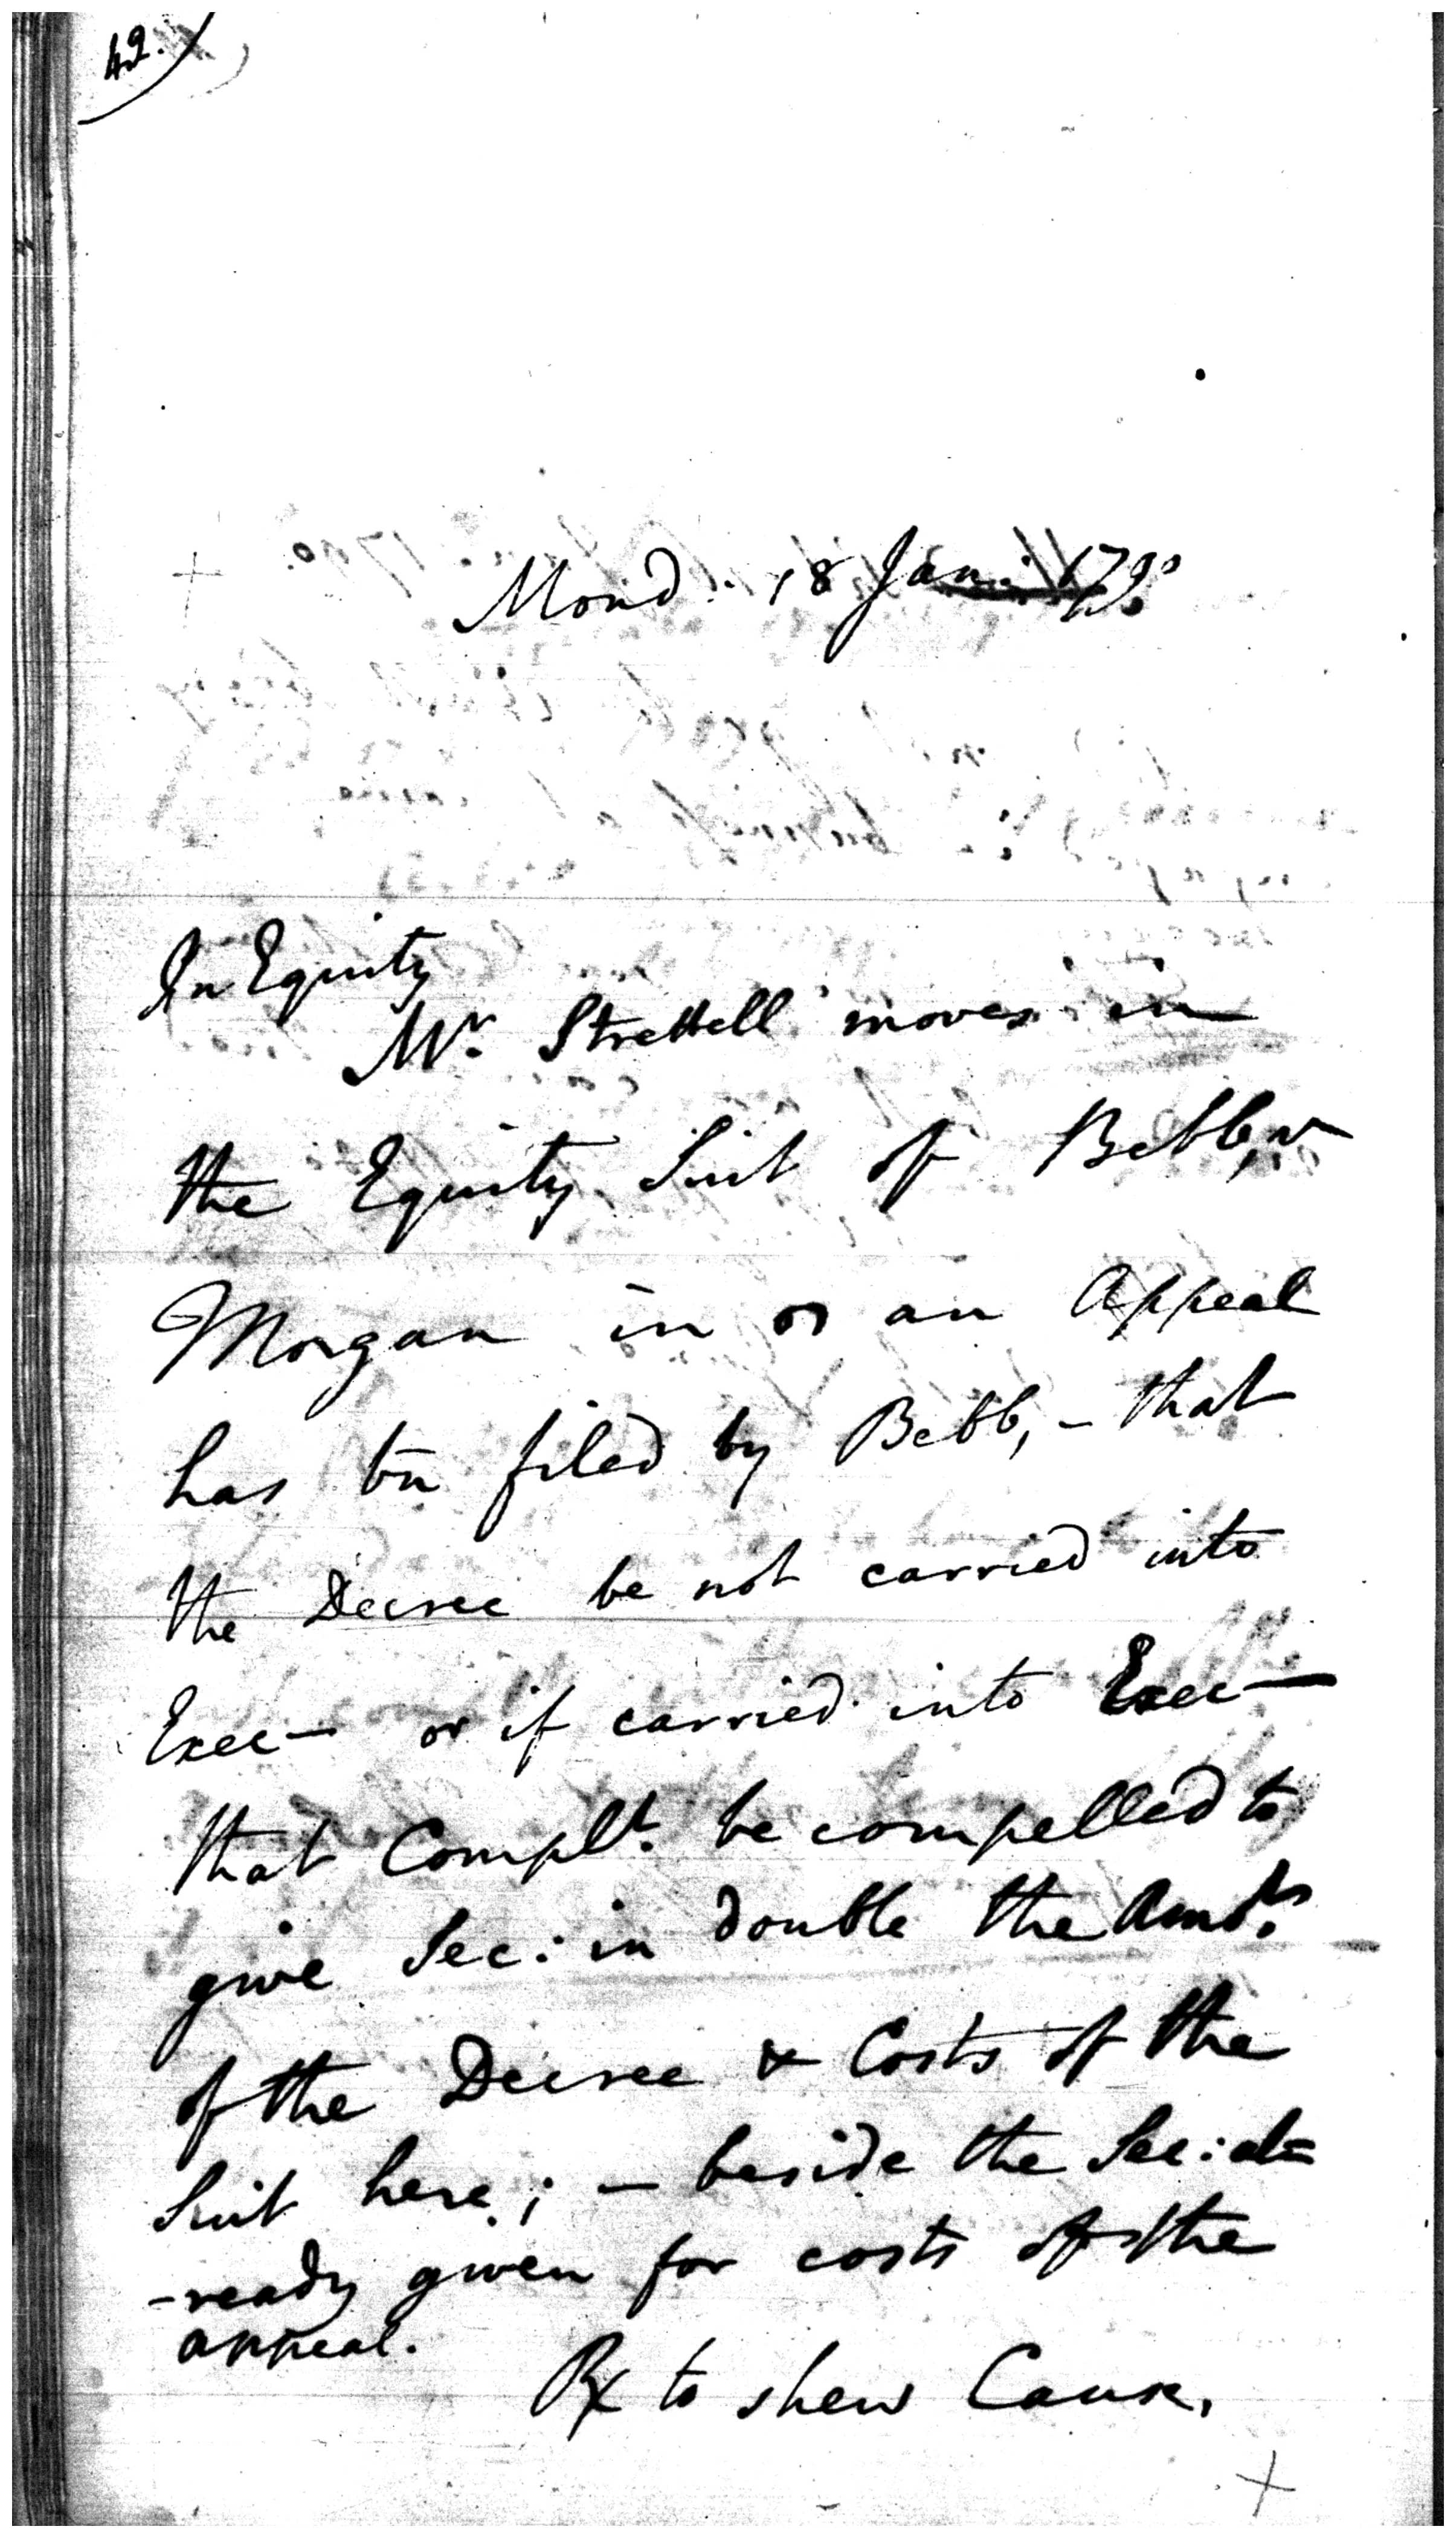 42.
Mond. 18 Jan. 1790
In Equity
Mr. Strettell moves in
the Equity Suit of Bebb, v
Morgan in an Appeal
has bn filed by Bebb, - that
the Decree be not carried into
Exec— or if carried into Exec—
that Complt. be compelled to
give Sec: in double the Amts.
of the Decree & Costs of the
Suit here; — beside the Sec: al=
-ready given for costs of the
appeal.
Rx to shew Cause.